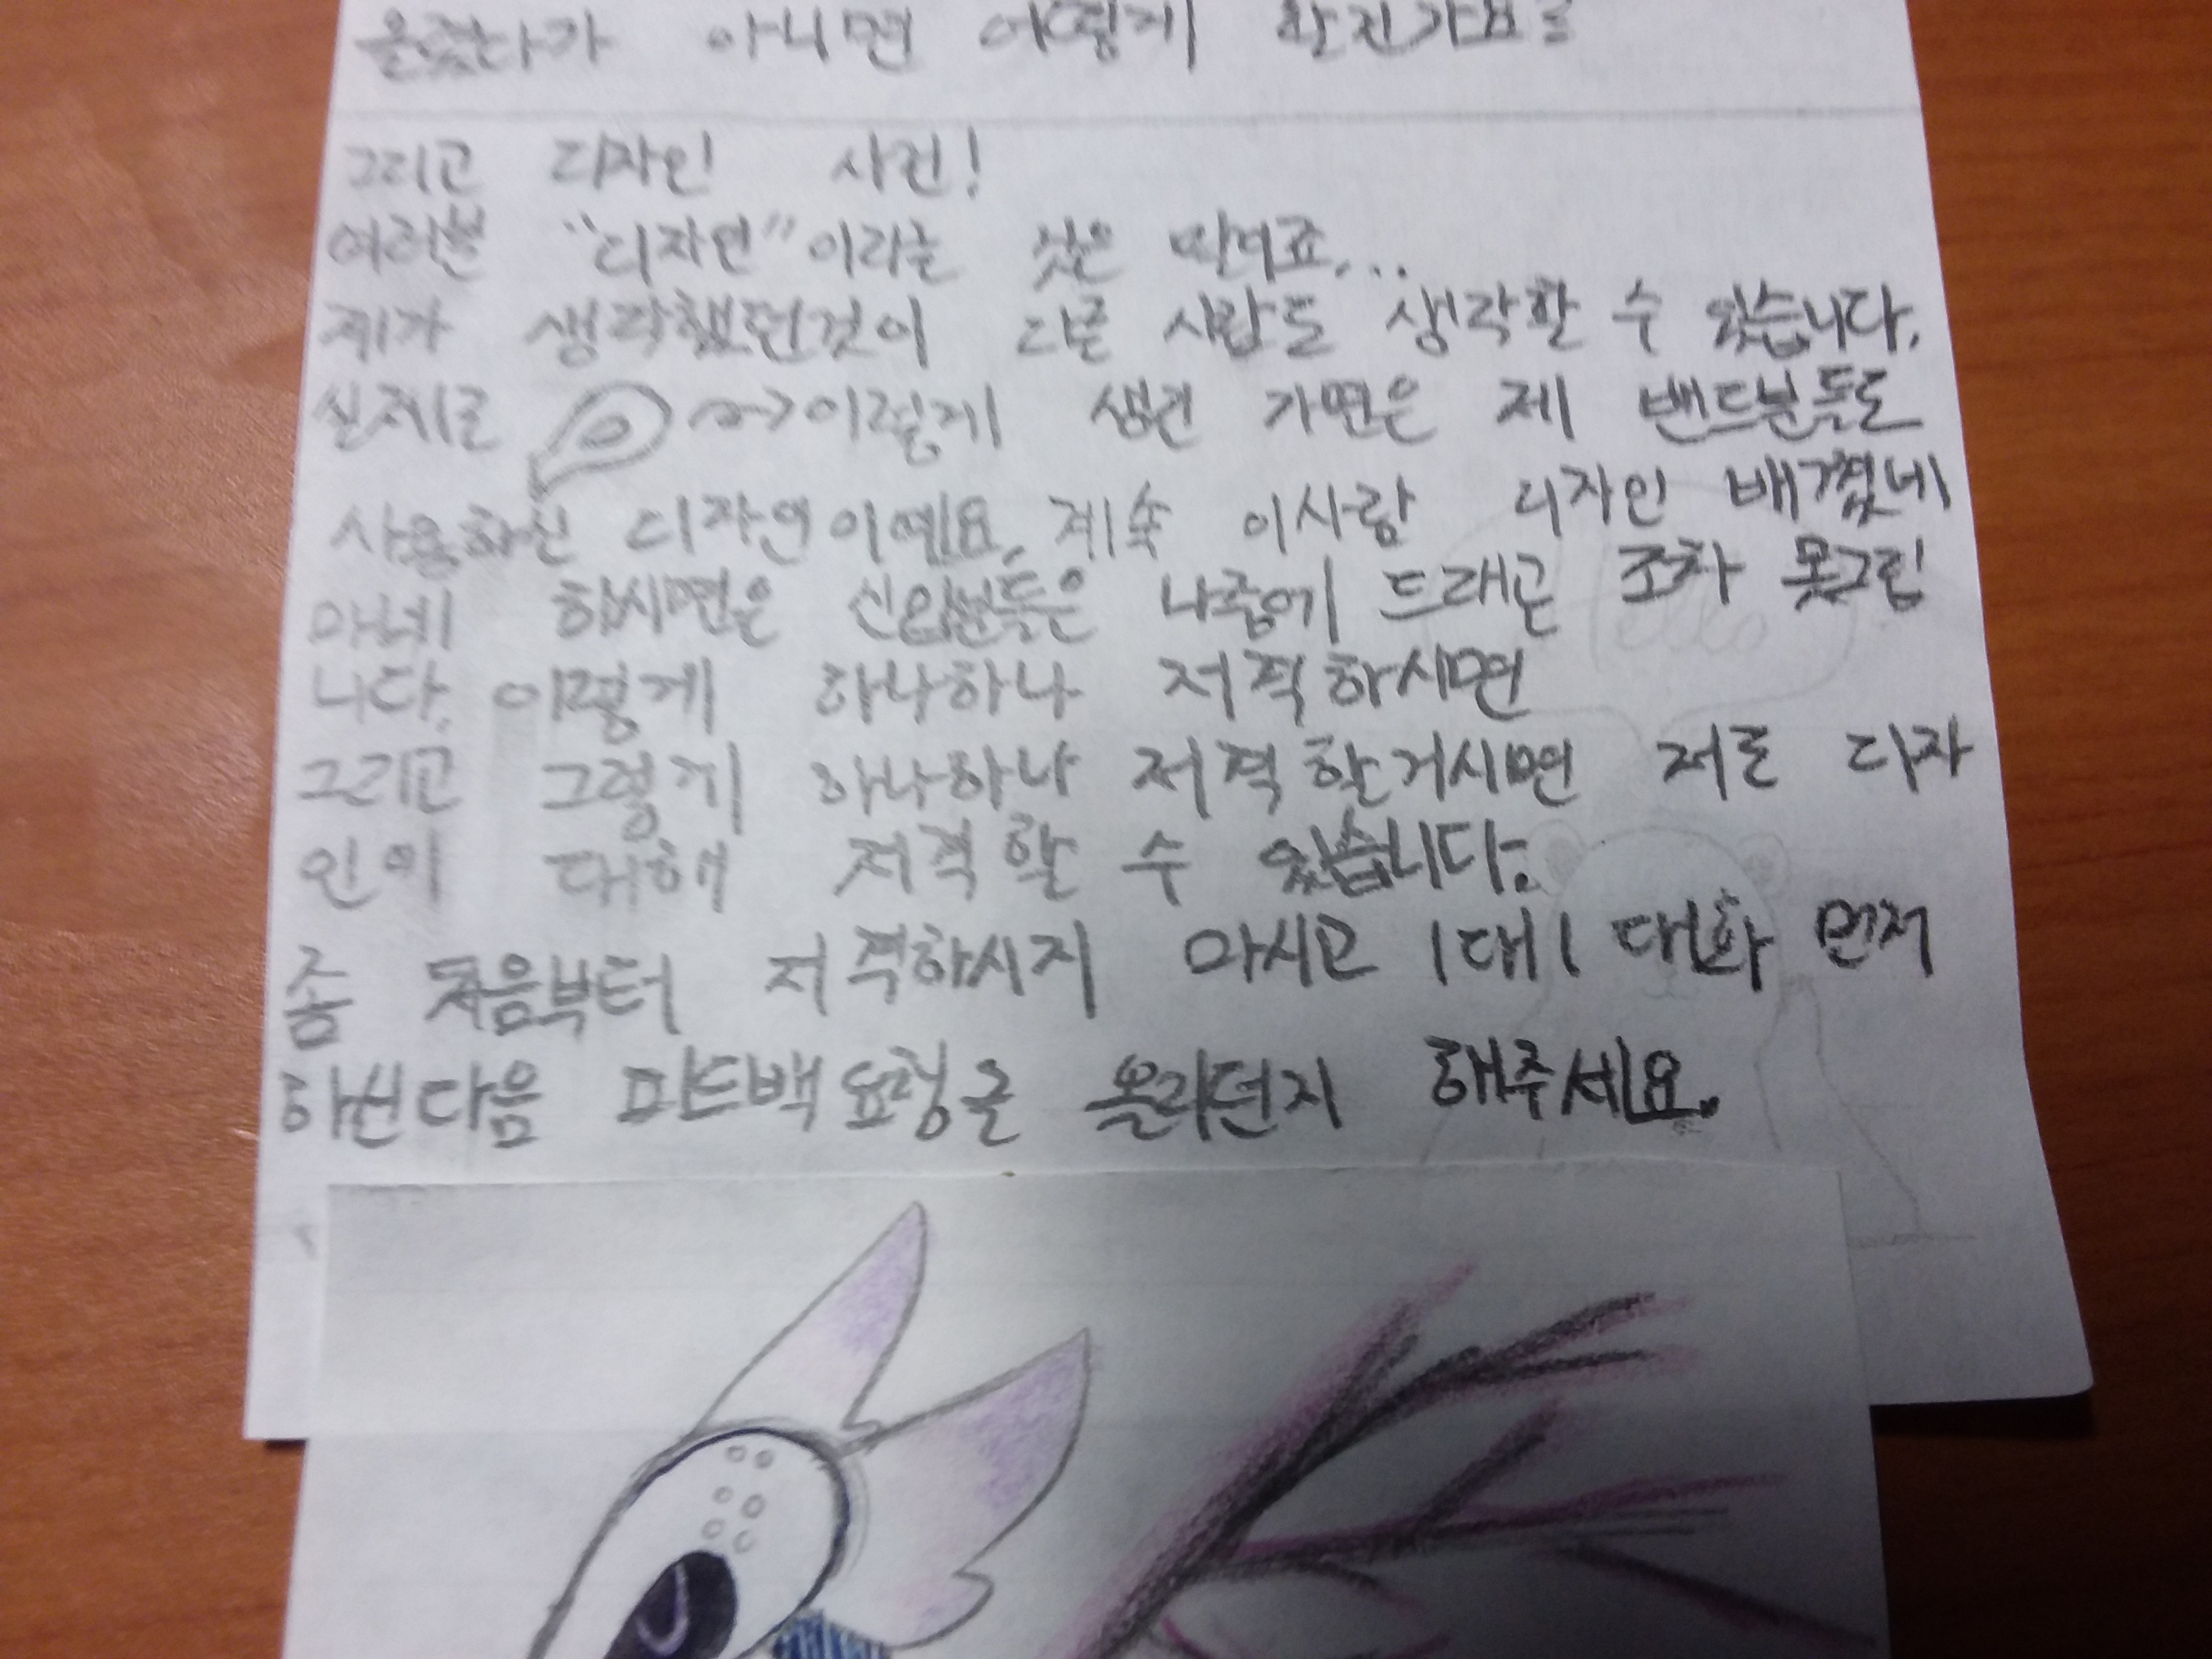 올렸다가 아니면 어떻게 할진가요를
그리고 디자인 사건!
여러분 "디자인"이라는 것은 말이죠...
제가 생각했던것이 다른 사람도 생각할 수 있습니다.
실제로 ~> 이렇게 생긴 가면은 제 밴드분들도
사용하신 디자인이에요. 계속 이사람 디자인 배꼈네
마네 하시면은 신입분들은 나중에 드래곤 조차 못그립
니다. 이렇게 하나하나 저적하시면
그리고 그렇게 하나하나 저적할거시면 저도 디자
인에 대해 저적할 수 있습니다.
좀 처음부터 저적하시지 마시고 1대1 대화 먼저
하신다음 피드백요청을 올리던지 해주세요.
Hello